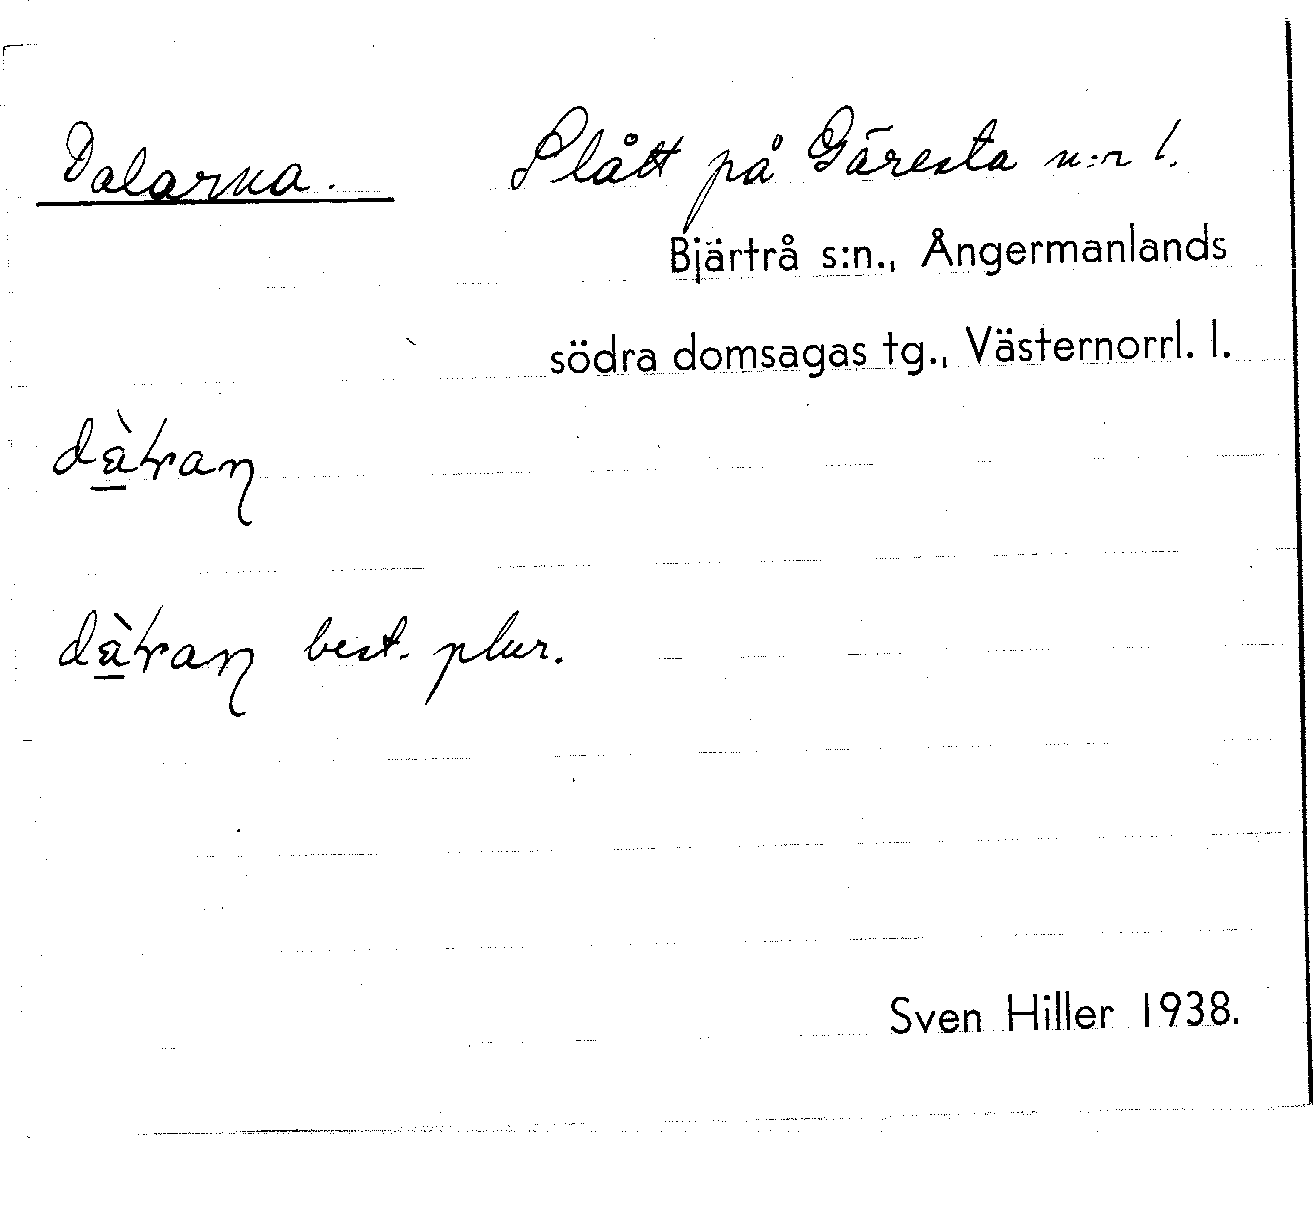 Dalarna. Slått på Gäresta n:r 1.
Bjärtrå s:n., Ångermanlands
södra domsagas tg., Västernorrl. l.
best. plur.
Sven Hiller 1938.